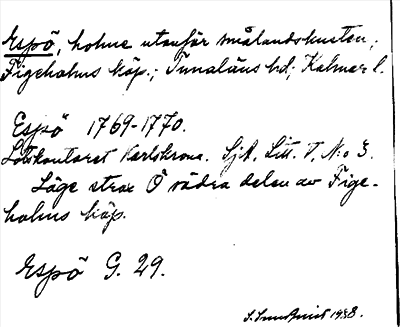 Espö, holme utanför smålandskusten;
Figeholms köp.; Tunaläns hd; Kalmar l.
Espö 1769-1770.
Lotskontoret Karlskrona. SjK. Litt. V, N:o 3.
Läge strax O södra delen av Fige-
holms köp.
Espö G. 29.
1938.